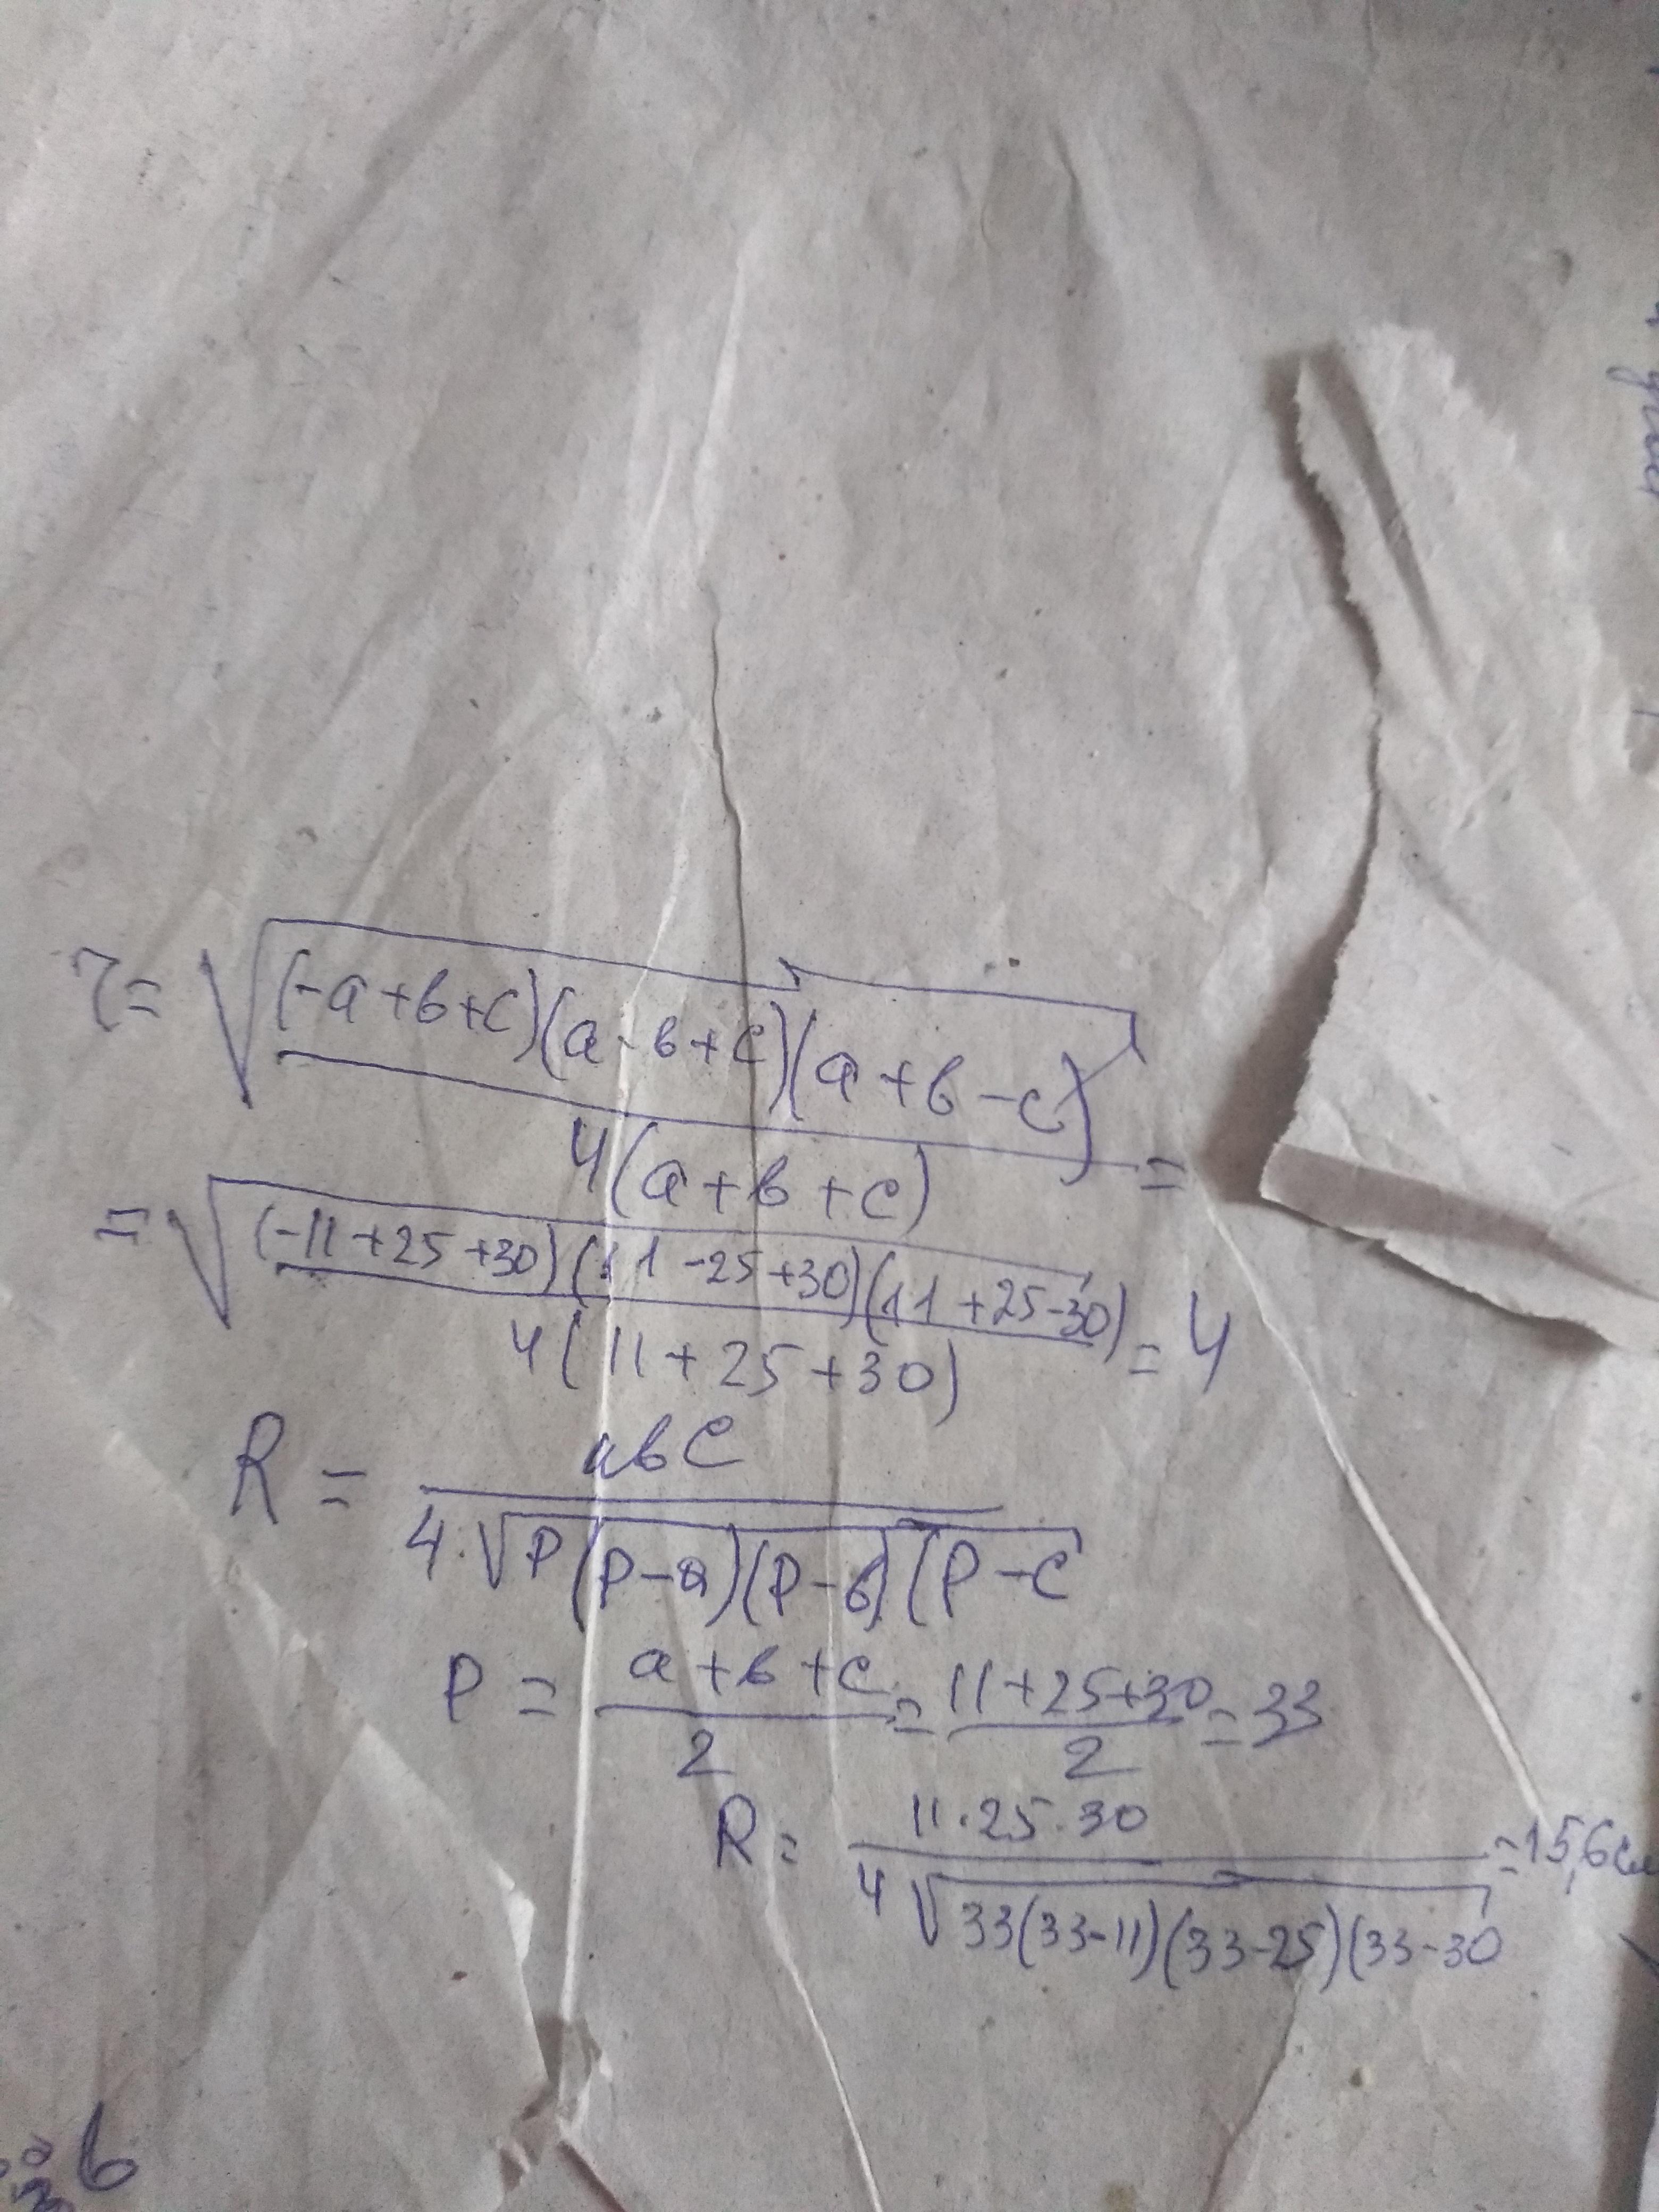 r = √(-a+b+c)(a-b+c)(a+b-c) =
4(a+b+c)
= √(-11+25+30)(11-25+30)(11+25-30) = 4
4(11+25+30)
R = abc
4·√P(P-a)(P-b)(P-c
P = a+b+c = 11+25+30 = 33
2 2
R = 11·25·30 = 15,6см
4 √33(33-11)(33-25)(33-30
в